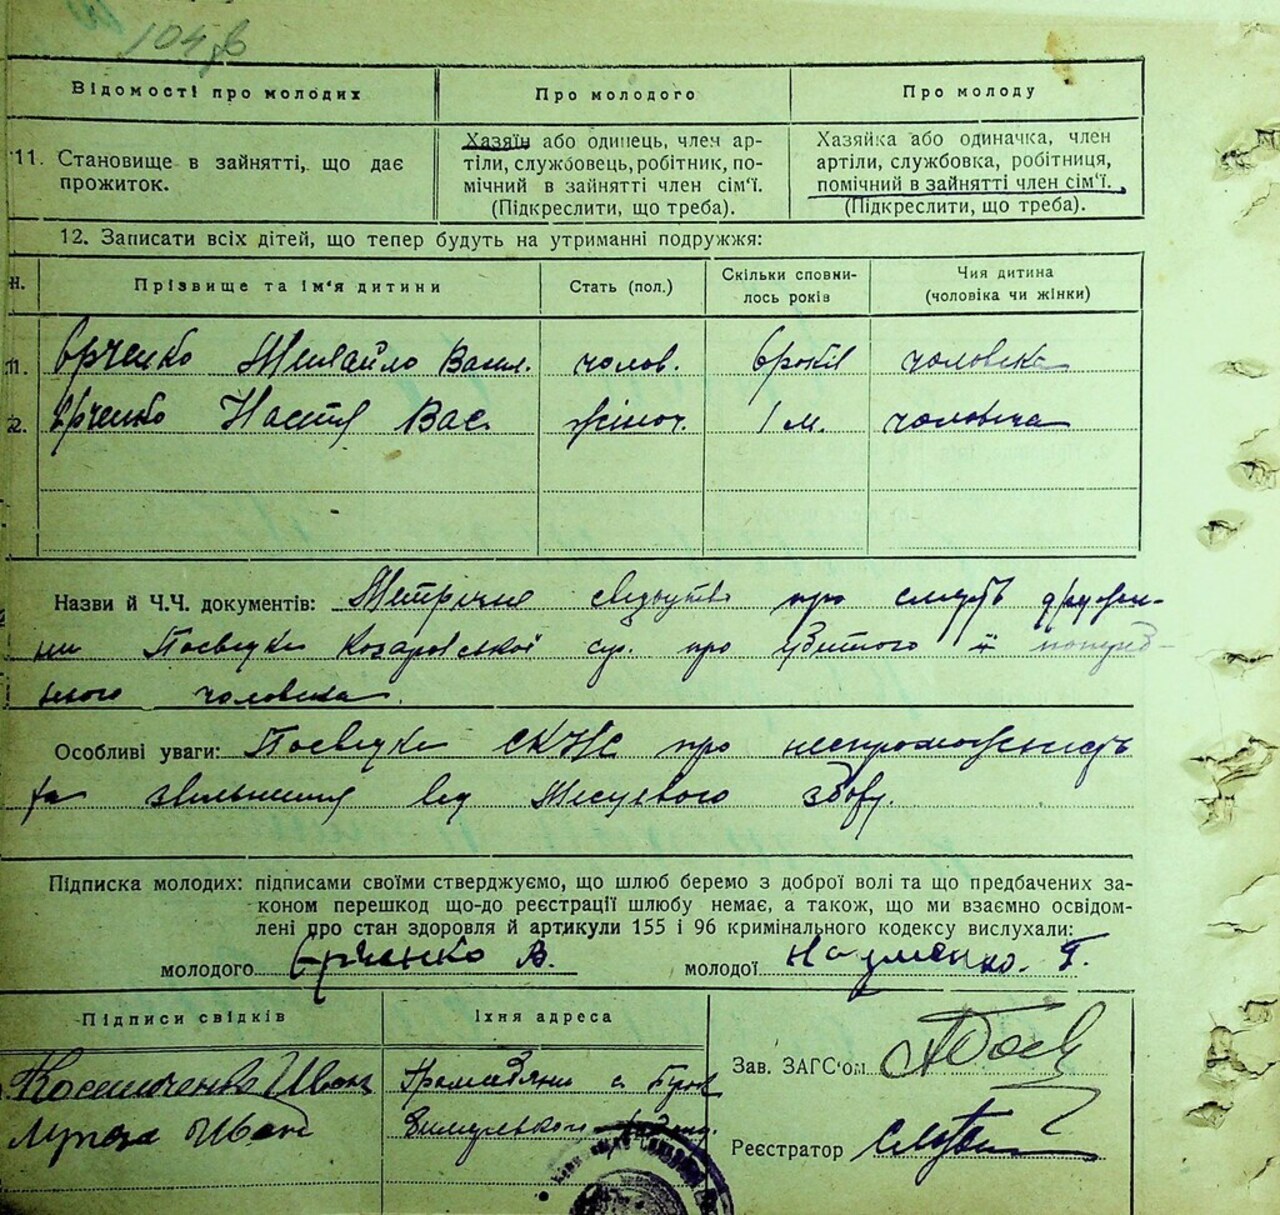 104 зв
Відомості про молодих
Про молодого
Про молоду
11. Становище в зайнятті, що дає
прожиток.
Хазяїн або одинець, член ар-
тіли, службовець, робітник, по-
мічний в зайнятті член сім'ї.
(Підкреслити, що треба).
Хазяйка або одиначка, член
артіли, службовка, робітниця,
помічний в зайнятті член сім'ї.
(Підкреслити, що треба).
12. Записати всіх дітей, що тепер будуть на утриманні подружжя:
Н.
Прізвище та ім'я дитини
Стать (пол.)
Скільки сповни-
лось років
Чия дитина
(чоловіка чи жінки)
1. Юрченко Михайло Васил. чолов. 6 років чоловіка
2. Юрченко Настя Вас. жіноч. 1 м. чоловіка
Назви й Ч.Ч. документів: Метричне свідоцтво про смерть дружи-
ни Посведка Козаровської с/р. про її попере-
днього чоловіка.
Особливі уваги: Посведка СКНС про неспроможність
та звільнення від Місцевого збору.
Підписка молодих: підписами своїми стверджуємо, що шлюб беремо з доброї волі та що предбачених за-
коном перешкод що-до реєстрації шлюбу немає, а також, що ми взаємно освідом-
лені про стан здоровля й артикули 155 і 96 кримінального кодексу вислухали:
молодого Юрченко В.
молодої Науменко. Г.
Підписи свідків
Їхня адреса
Зав. ЗАГС'ом
Іван
Громадяни с.
Іван
Реєстратор